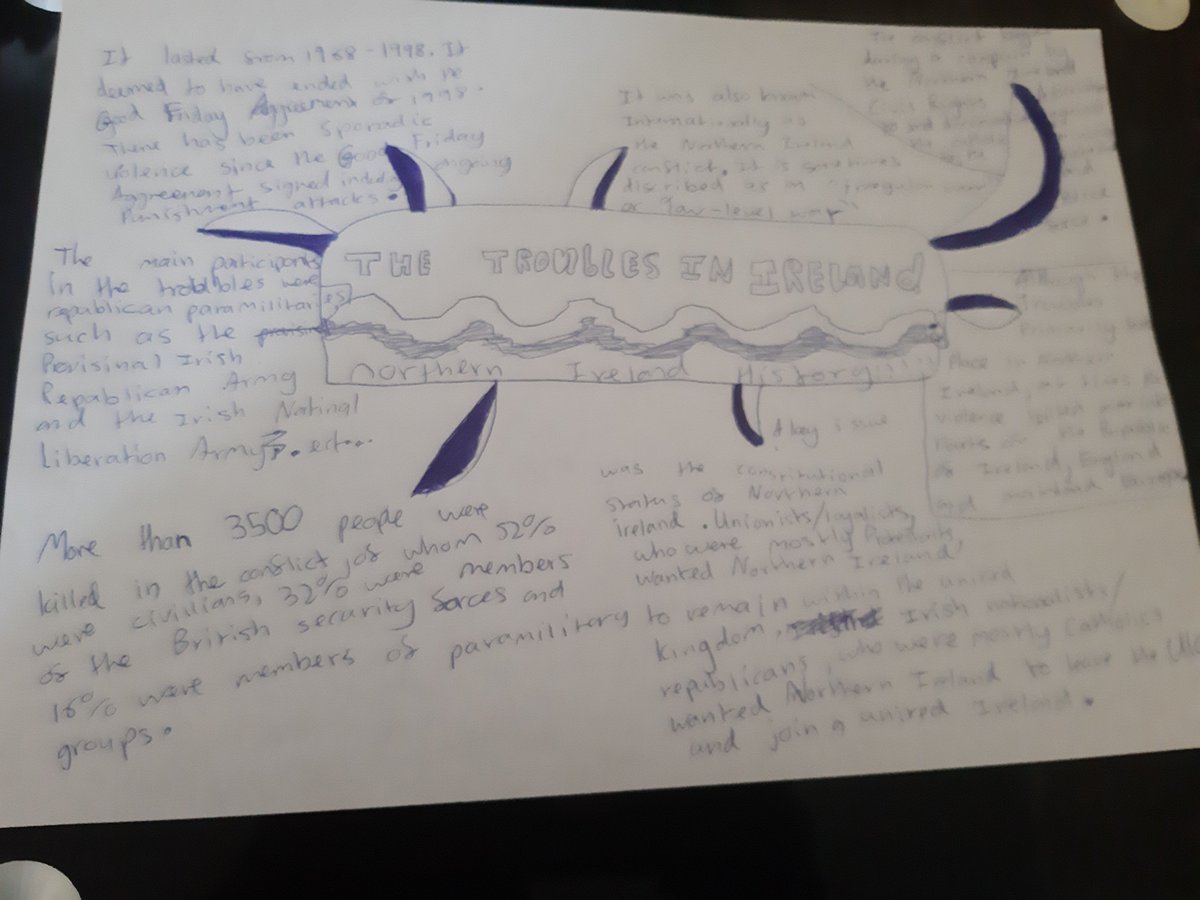 It lasted from 1968 - 1998. It
deemed to have ended with he
Good Friday Agreement of 1998.
There has been Sporadic
violence since the Good Friday
Aggreement signed ongoing
Punishment attacks.
It was also known
Internationally as
the Northern Ireland
conflict. It is sometimes
discribed as an "irregular war"
or "low-level war"
The conflict
during a campaign by
the Northern Ireland
Civil Rights
THE TROUBLES IN IRELAND
Northern Ireland History!!!!
The main participants
in the troubles were
republican paramilitaries
such as the
Provisinal Irish
Republican Army
and the Irish Natinal
liberation Army. ect...
Although the
Troubles
Primarily
Place in Northern
Ireland, at times
violence spilled over
Parts of the Republic
of Ireland, England
and mainland Europe
More than 3500 people were
killed in the conflict, of whom 52%
were civilians, 32% were members
of the British security forces and
16% were members of paramilitary
groups.
A key issue
was the constitutional
status of Northern
ireland. Unionists/loyalists,
who were mostly Protestants,
wanted Northern Ireland
to remain within the united
kingdom, Irish nationalists/
republicans, who were mostly Catholics
wanted Northern Ireland to leave the UK
and join a united Ireland.